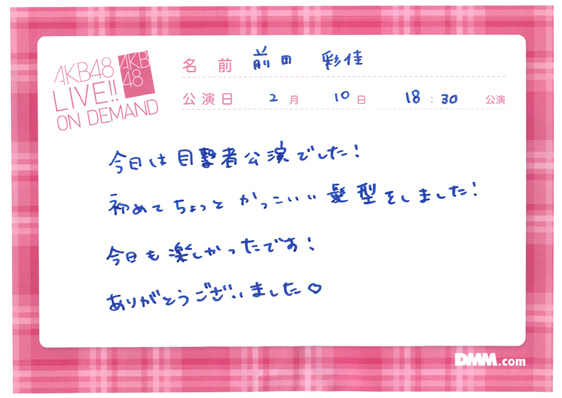 AKB48
LIVE!!
ON DEMAND
AKB
48
名前 前田 彩佳
公演日 2月 10日 18:30 公演
今日は目撃者公演でした!
初めてちょっとかっこいい髪型をしました!
今日も楽しかったです!
ありがとうございました♡
DMM.com